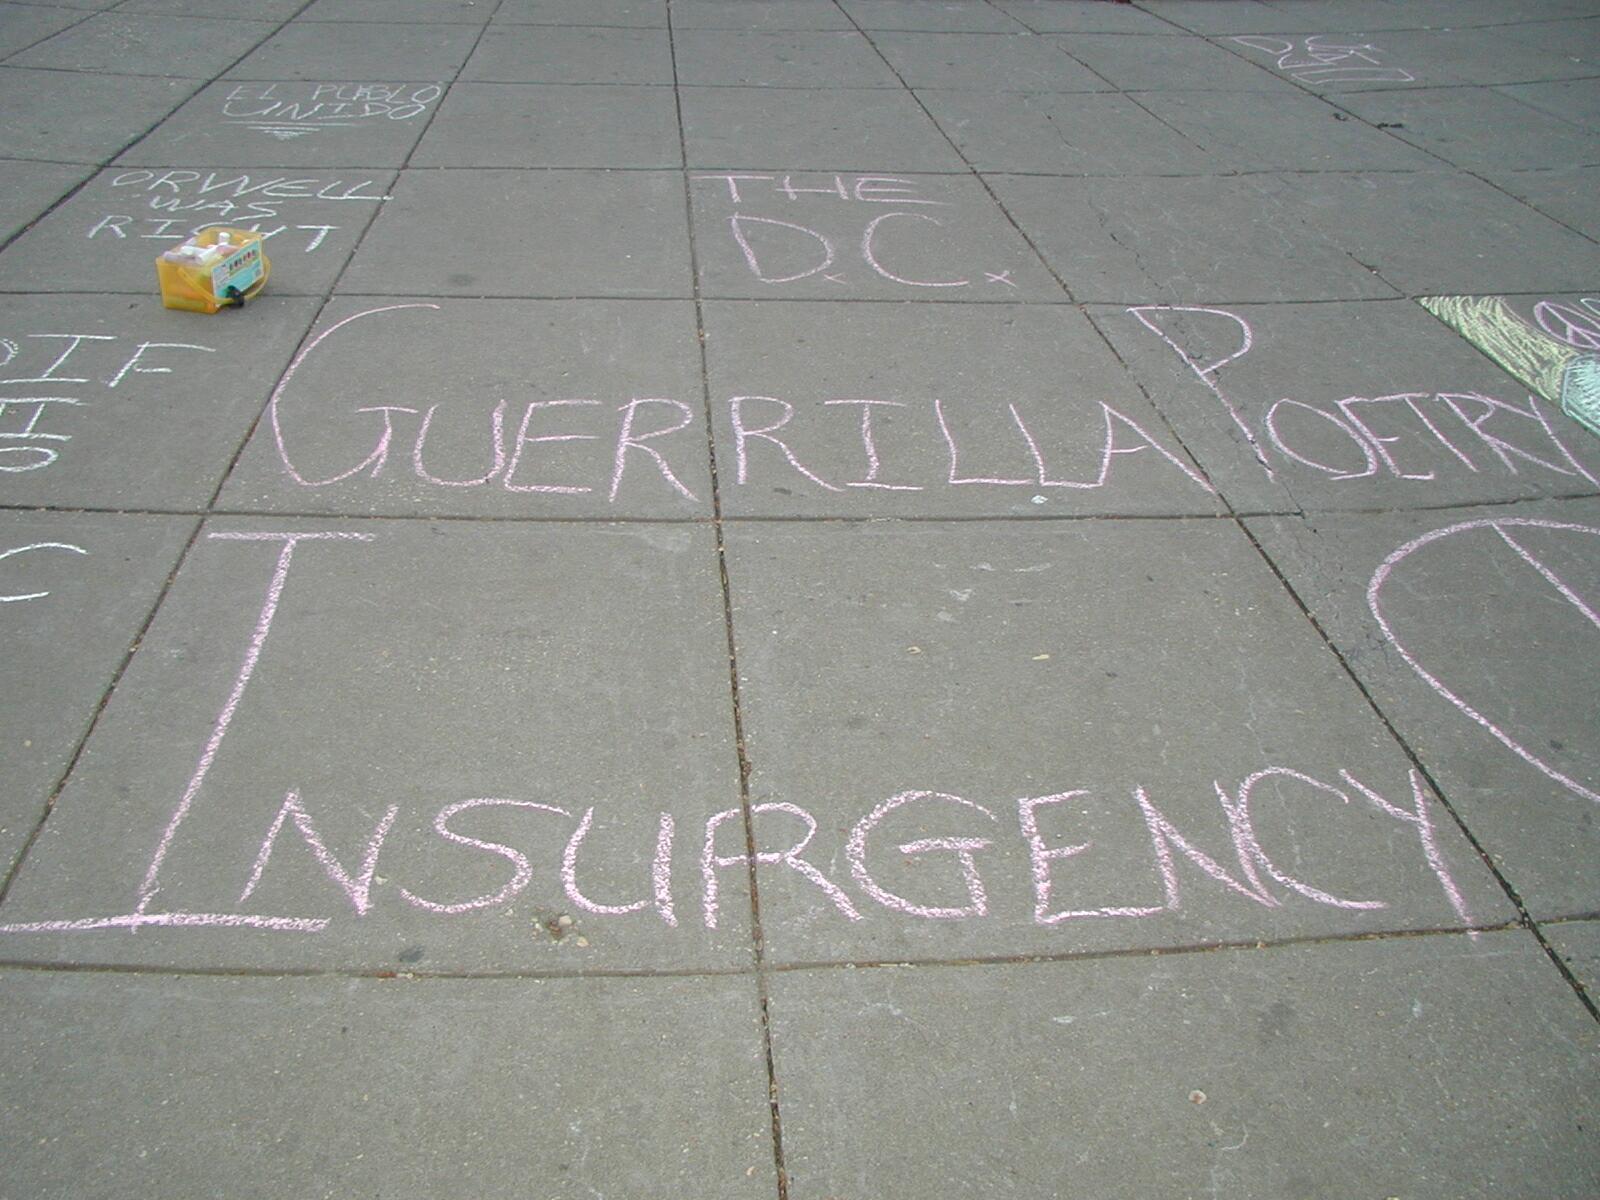 EL PUEBLO
UNIDO
ORWELL
WAS
RIGHT
THE
D.C.
GUERRILLA POETRY
INSURGENCY